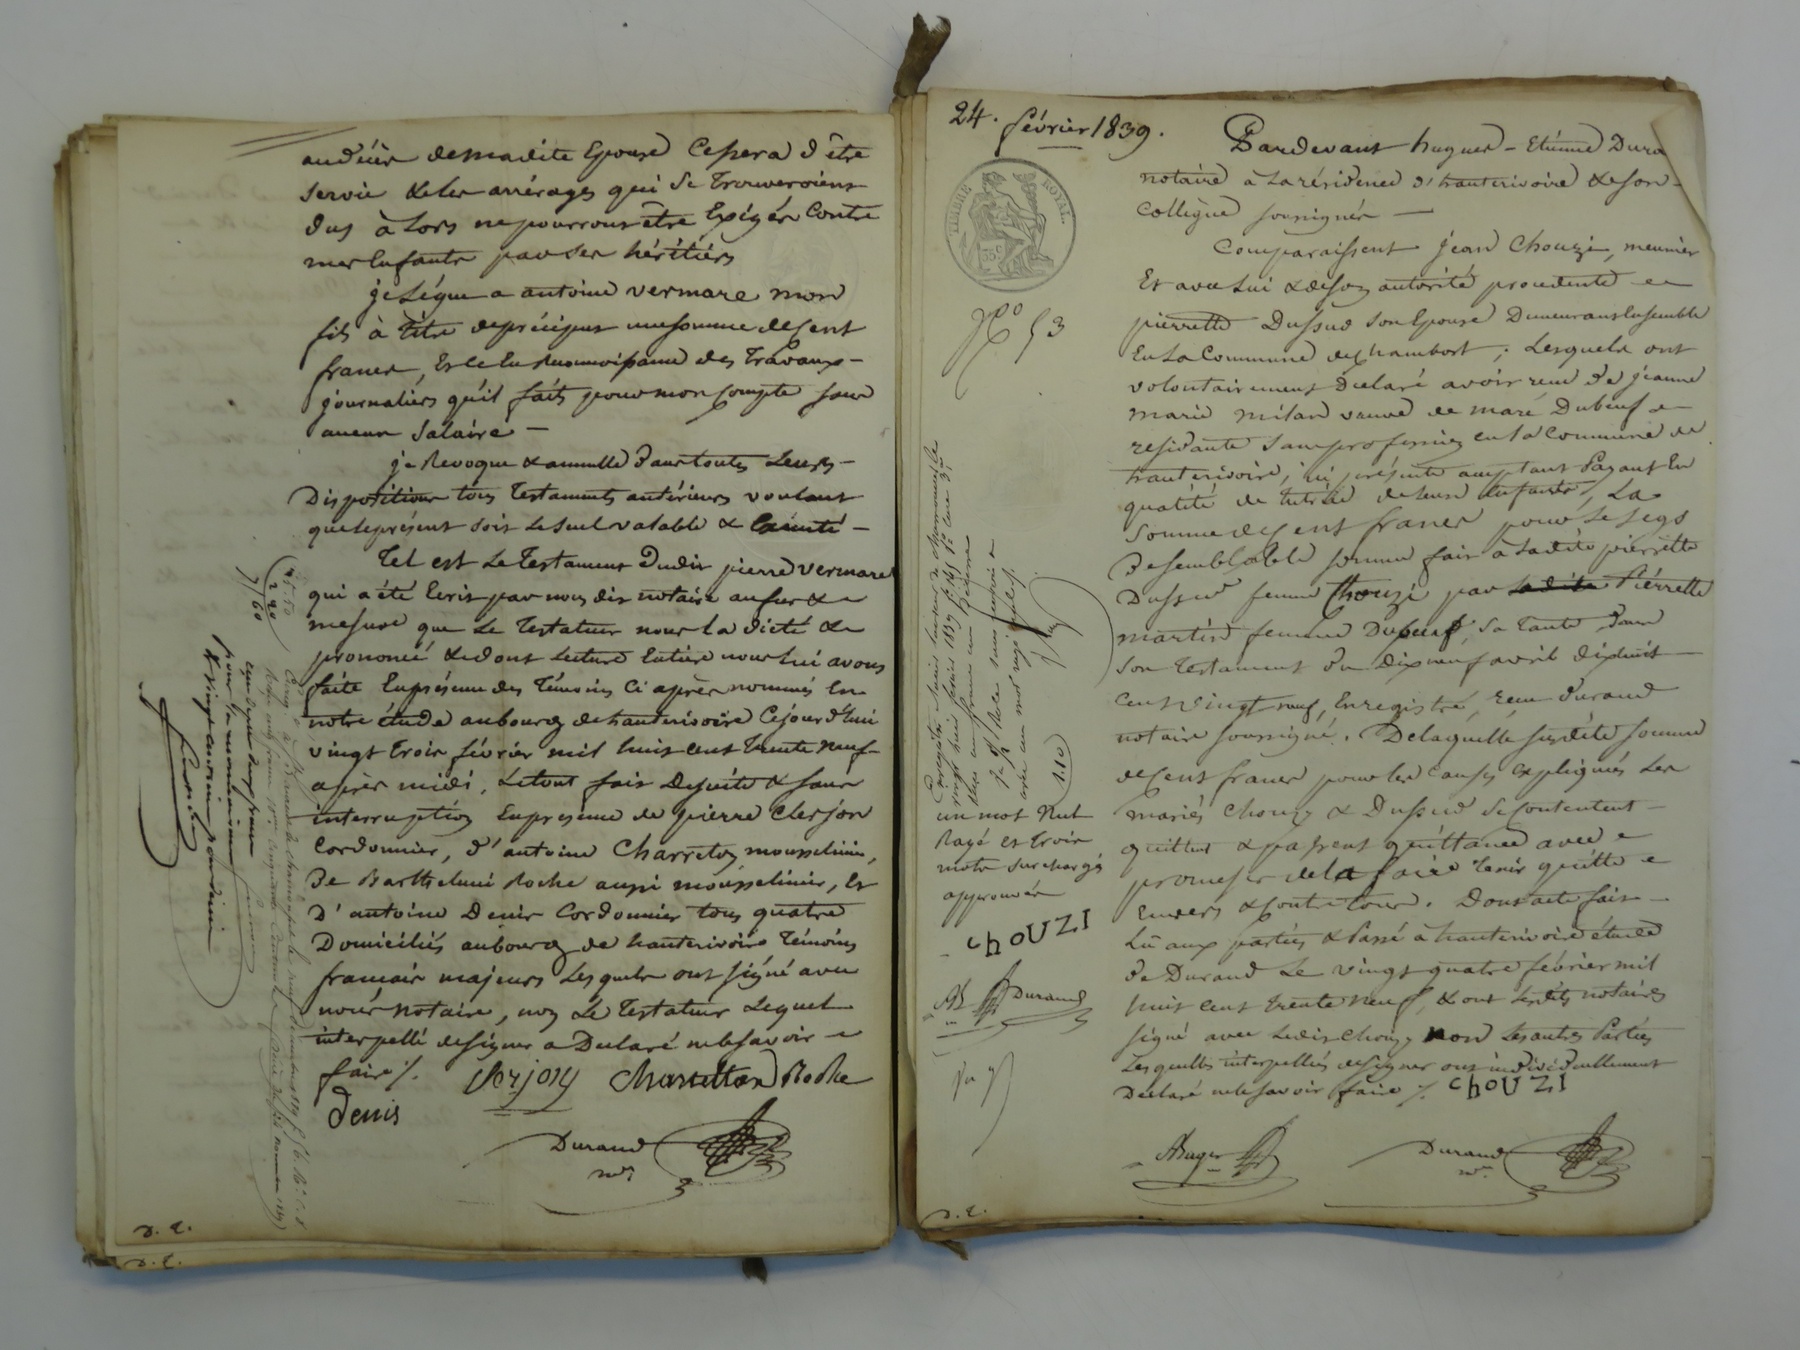 au décès de madite Epouse Cessera d'être
servie & les arrérages qui se trouveroient
dus à Lors ne pourront être Exigés Contre
mes Enfants par ses héritiers
je Lègue a antoine vermare mon
fils à titre de préciput une somme de Cent
francs, Et ce En Reconnoissance des Travaux
journaliers qu'il fait pour mon Compte sans
aucun Salaire —
je Revoque & annulle dans toutes Leurs
Dispositions tous Testaments antérieurs voulant
que le présent soit Le seul valable &
Tel est Le Testament dudit pierre vermare
qui a été Ecrit par nous dit notaire au fur & a
mesure que Le Testateur nous l'a dicté &
prononcé & dont Lecture Entière nous Lui avons
faite En présence des Témoins Ci après nommés En
notre étude au bourg de hauterivoire Cejourd'hui
vingt trois février mil huit cent Trente neuf
après midi, Le tout fait de suite & sans
interruption En présence de pierre Clerjon
Cordonnier, d'antoine Charreton mousselinier,
de Barthelemi Roche aussi mousselinier, Et
D'antoine Denis Cordonnier tous quatre
Domiciliés au bourg de hauterivoire Témoins
français majeurs Lesquels ont signé avec
nous notaire, non Le Testateur Lequel
interpellé de signer a Declaré ne le savoir
faire /. Clerjon Charretton Roche
Denis
Durand
nre
D. E.
D. E.
24. février 1839.
TIMBRE ROYAL
N° 53
Pardevant hugues-Etienne Dura
notaire à La résidence d'hauterivoire & son
Collègue soussignés —
Comparaissent jean Chouzi, meunier
Et avec Lui & de son autorité procedente
pierrette Dussud son Epouse Demeurant Ensemble
En La Commune de Chambost; Lesquels ont
volontairement déclaré avoir reçu de jeanne
marie milan veuve de marc Dubeuf
residante sans profession en La Commune de
hauterivoire, ici présente acceptant Payant En
qualité de tutrice de ses Enfants, La
somme de Cent francs pour Le Legs
de semblable somme fait à Ladite pierrette
Dussud femme Chouzi par Ladite Pierrette
martin femme Dubeuf, sa Tante dans
son Testament du dix neuf avril dix huit
Cent vingt neuf, Enregistré, reçu Durand
notaire soussigné. De laquelle susdite somme
de Cent francs pour les causes Expliquées Les
mariés Chouzy & Dussud se Contentent
quittent & passent quittance avec
promesse de la faire tenir quitte
Envers & Contre tous. Dont acte fait
Lû aux parties & Passé à hauterivoire étude
de Durand Le vingt quatre février mil
huit Cent trente neuf, & ont Lesdits notaires
signé avec Ledit Chouzy non Les autres Parties
Lesquelles interpellées de signer ont individuellement
Declaré ne le savoir faire /. ChOUZI
un mot nul
Rayé et trois
mots surchargés
approuvés
ChOUZI
Durand
Durand
nre
D. E.